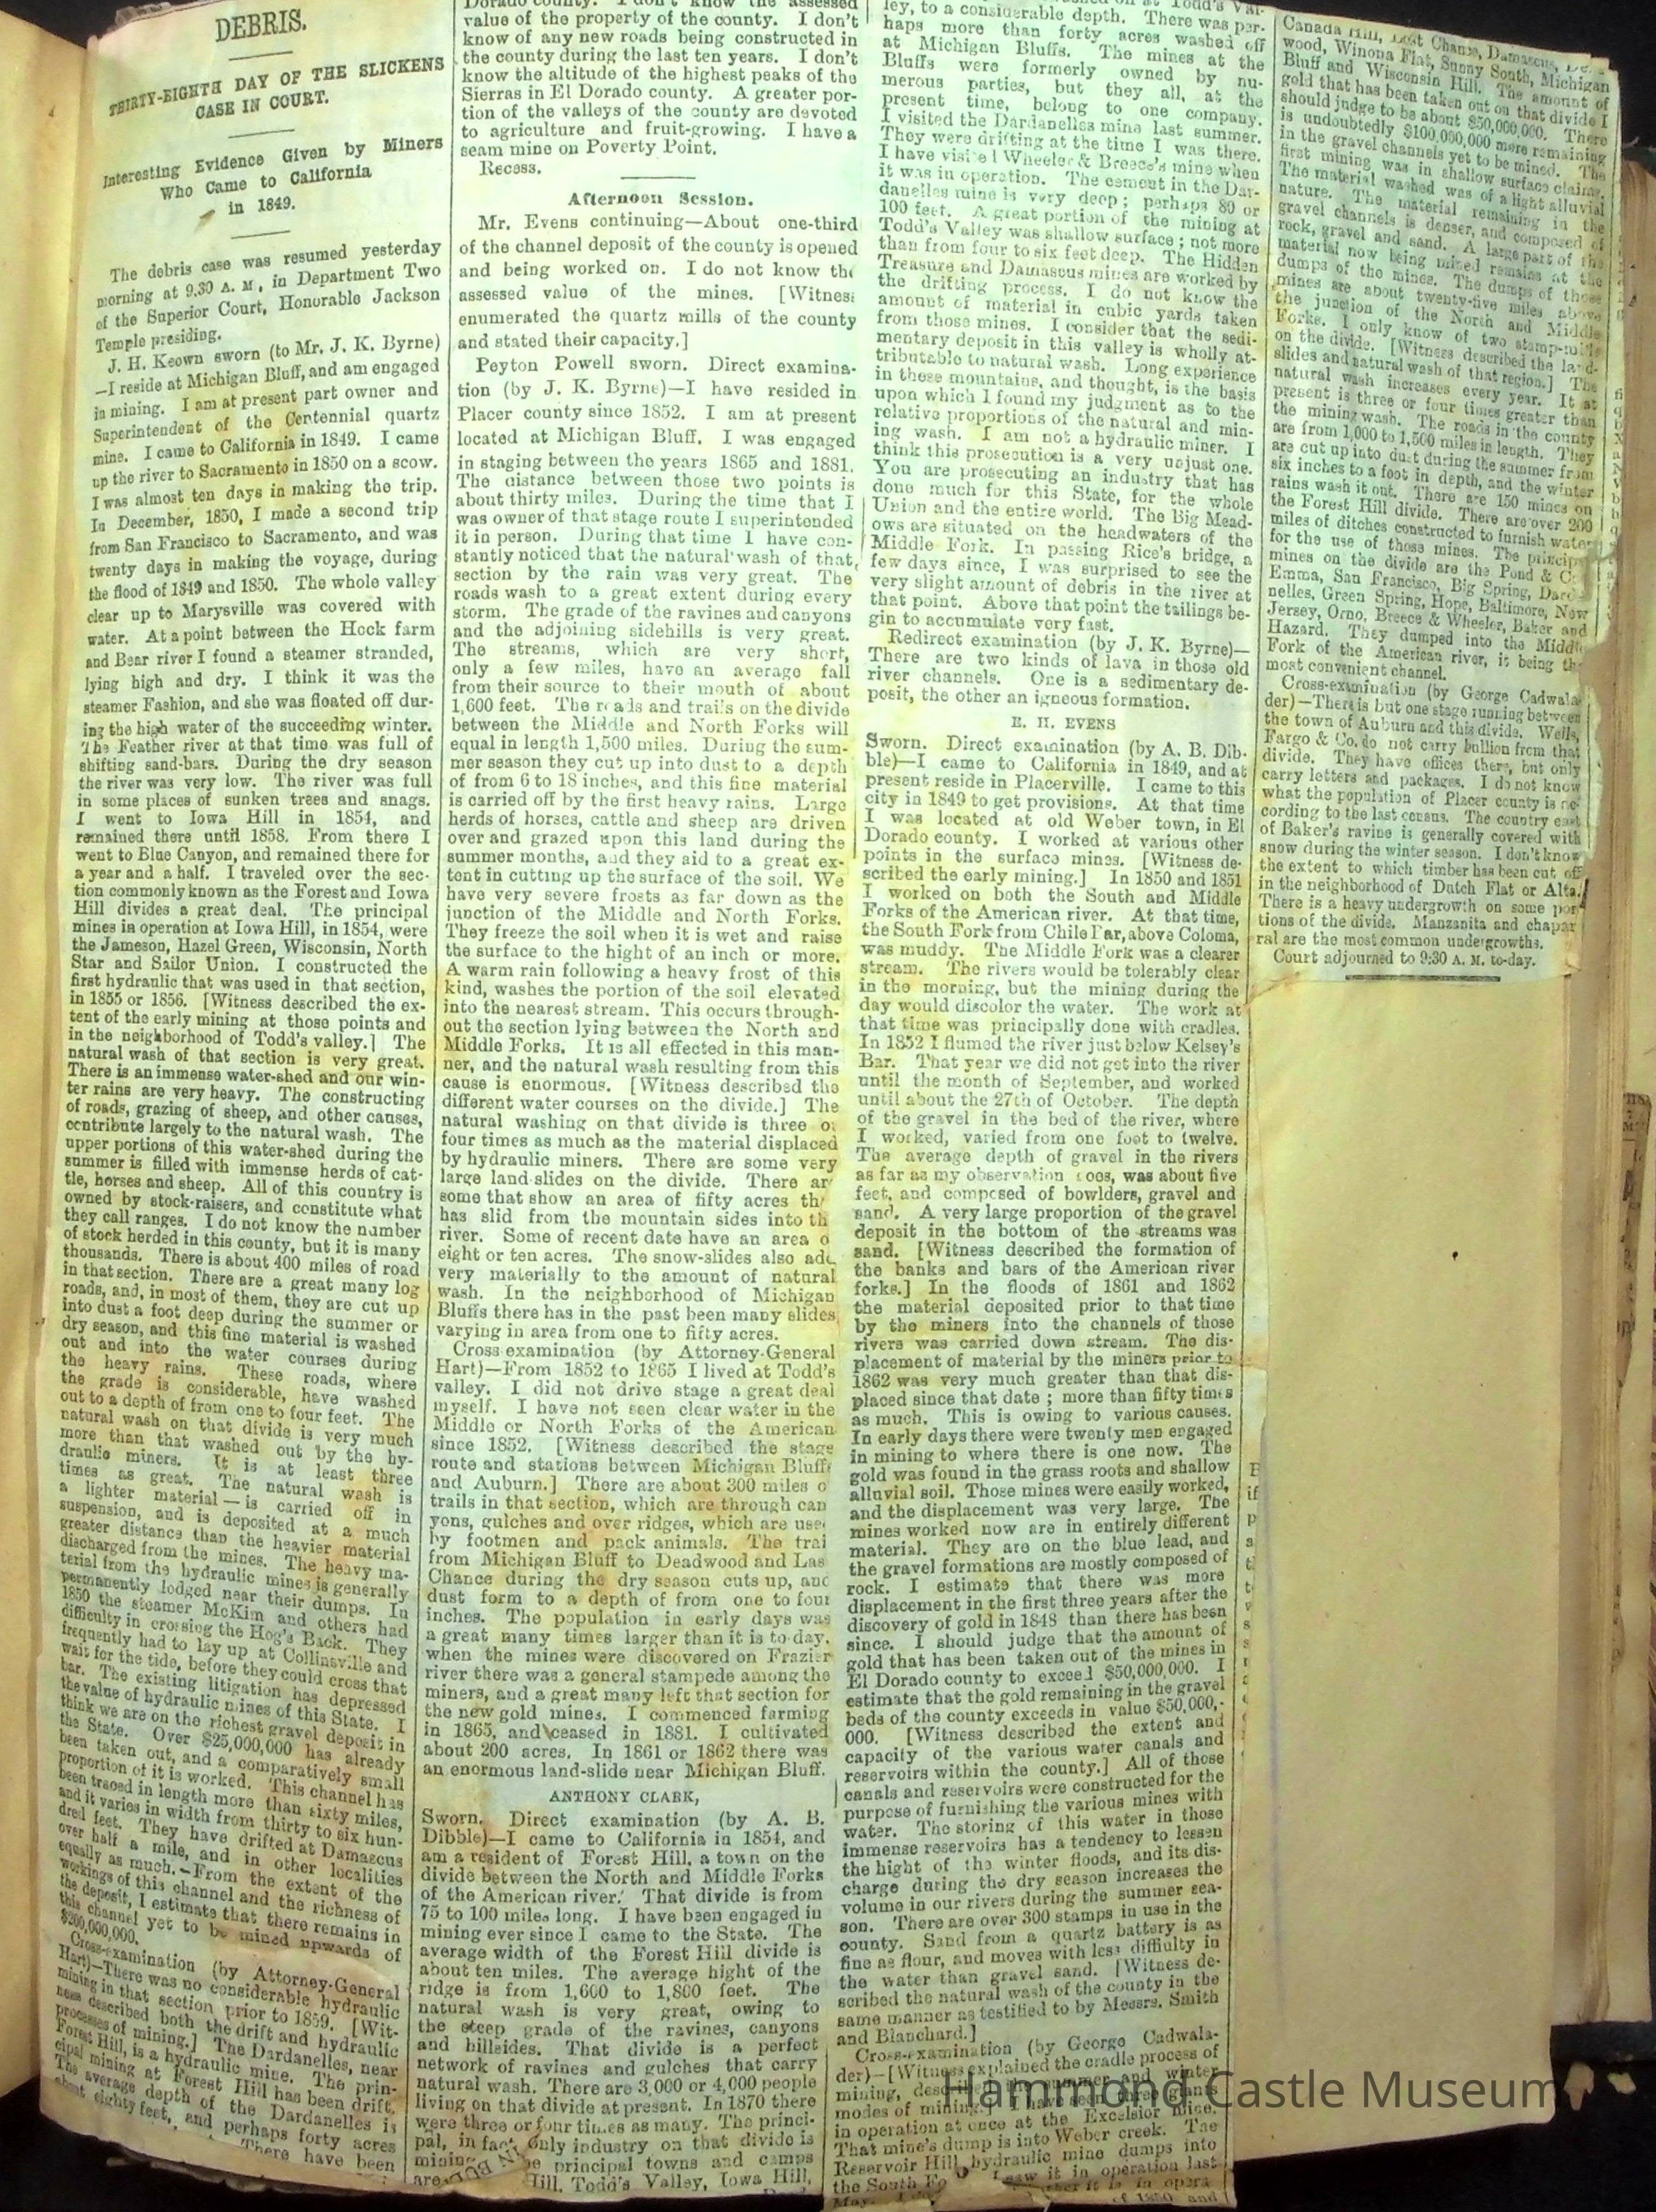 DEBRIS.
THIRTY-EIGHTH DAY OF THE SLICKENS
CASE IN COURT.
Interesting Evidence Given by Miners
Who Came to California
in 1849.
The debris case was resumed yesterday
morning at 9.30 A. M., in Department Two
of the Superior Court, Honorable Jackson
Temple presiding.
J. H. Keown sworn (to Mr. J. K. Byrne)
—I reside at Michigan Bluff, and am engaged
in mining. I am at present part owner and
Superintendent of the Centennial quartz
mine. I came to California in 1849. I came
up the river to Sacramento in 1850 on a scow.
I was almost ten days in making the trip.
In December, 1850, I made a second trip
from San Francisco to Sacramento, and was
twenty days in making the voyage, during
the flood of 1849 and 1850. The whole valley
clear up to Marysville was covered with
water. At a point between the Hock farm
and Bear river I found a steamer stranded,
lying high and dry. I think it was the
steamer Fashion, and she was floated off dur-
ing the high water of the succeeding winter.
The Feather river at that time was full of
shifting sand-bars. During the dry season
the river was very low. The river was full
in some places of sunken trees and snags.
I went to Iowa Hill in 1854, and
remained there until 1858. From there I
went to Blue Canyon, and remained there for
a year and a half. I traveled over the sec-
tion commonly known as the Forest and Iowa
Hill divides a great deal. The principal
mines in operation at Iowa Hill, in 1854, were
the Jameson, Hazel Green, Wisconsin, North
Star and Sailor Union. I constructed the
first hydraulic that was used in that section,
in 1855 or 1856. [Witness described the ex-
tent of the early mining at those points and
in the neighborhood of Todd's valley.] The
natural wash of that section is very great.
There is an immense water-shed and our win-
ter rains are very heavy. The constructing
of roads, grazing of sheep, and other causes,
contribute largely to the natural wash. The
upper portions of this water-shed during the
summer is filled with immense herds of cat-
tle, horses and sheep. All of this country is
owned by stock-raisers, and constitute what
they call ranges. I do not know the number
of stock herded in this county, but it is many
thousands. There is about 400 miles of road
in that section. There are a great many log
roads, and, in most of them, they are cut up
into dust a foot deep during the summer or
dry season, and this fine material is washed
out and into the water courses during
the heavy rains. These roads, where
the grade is considerable, have washed
out to a depth of from one to four feet. The
natural wash on that divide is very much
more than that washed out by the hy-
draulic miners. It is at least three
times as great. The natural wash is
a lighter material—is carried off in
suspension, and is deposited at a much
greater distance than the heavier material
discharged from the mines. The heavy ma-
terial from the hydraulic mines is generally
permanently lodged near their dumps. In
1850 the steamer McKim and others had
difficulty in crossing the Hog's Back. They
frequently had to lay up at Collinsville and
wait for the tide, before they could cross that
bar. The existing litigation has depressed
the value of hydraulic mines of this State. I
think we are on the richest gravel deposit in
the State. Over $25,000,000 has already
been taken out, and a comparatively small
proportion of it is worked. This channel has
been traced in length more than sixty miles,
and it varies in width from thirty to six hun-
dred feet. They have drifted at Damascus
over half a mile, and in other localities
equally as much. From the extent of the
workings of this channel and the richness of
the deposit, I estimate that there remains in
this channel yet to be mined upwards of
$200,000,000.
Cross-examination (by Attorney-General
Hart)—There was no considerable hydraulic
mining in that section prior to 1859. [Wit-
ness described both the drift and hydraulic
processes of mining.] The Dardanelles, near
Forest Hill, is a hydraulic mine. The prin-
cipal mining at Forest Hill has been drift.
The average depth of the Dardanelles is
about eighty feet, and perhaps forty acres
There have been
Dorado county. I don't know the assessed
value of the property of the county. I don't
know of any new roads being constructed in
the county during the last ten years. I don't
know the altitude of the highest peaks of the
Sierras in El Dorado county. A greater por-
tion of the valleys of the county are devoted
to agriculture and fruit-growing. I have a
seam mine on Poverty Point.
Recess.
Afternoon Session.
Mr. Evens continuing—About one-third
of the channel deposit of the county is opened
and being worked on. I do not know the
assessed value of the mines. [Witness
enumerated the quartz mills of the county
and stated their capacity.]
Peyton Powell sworn. Direct examina-
tion (by J. K. Byrne)—I have resided in
Placer county since 1852. I am at present
located at Michigan Bluff. I was engaged
in staging between the years 1865 and 1881.
The distance between those two points is
about thirty miles. During the time that I
was owner of that stage route I superintended
it in person. During that time I have con-
stantly noticed that the natural wash of that
section by the rain was very great. The
roads wash to a great extent during every
storm. The grade of the ravines and canyons
and the adjoining sidehills is very great.
The streams, which are very short,
only a few miles, have an average fall
from their source to their mouth of about
1,600 feet. The roads and trails on the divide
between the Middle and North Forks will
equal in length 1,500 miles. During the sum-
mer season they cut up into dust to a depth
of from 6 to 18 inches, and this fine material
is carried off by the first heavy rains. Large
herds of horses, cattle and sheep are driven
over and grazed upon this land during the
summer months, and they aid to a great ex-
tent in cutting up the surface of the soil. We
have very severe frosts as far down as the
junction of the Middle and North Forks.
They freeze the soil when it is wet and raise
the surface to the hight of an inch or more.
A warm rain following a heavy frost of this
kind, washes the portion of the soil elevated
into the nearest stream. This occurs through-
out the section lying between the North and
Middle Forks. It is all effected in this man-
ner, and the natural wash resulting from this
cause is enormous. [Witness described the
different water courses on the divide.] The
natural washing on that divide is three or
four times as much as the material displaced
by hydraulic miners. There are some very
large land-slides on the divide. There are
some that show an area of fifty acres that
has slid from the mountain sides into the
river. Some of recent date have an area of
eight or ten acres. The snow-slides also add
very materially to the amount of natural
wash. In the neighborhood of Michigan
Bluffs there has in the past been many slides,
varying in area from one to fifty acres.
Cross examination (by Attorney-General
Hart)—From 1852 to 1865 I lived at Todd's
valley. I did not drive stage a great deal
myself. I have not seen clear water in the
Middle or North Forks of the American
since 1852. [Witness described the stage
route and stations between Michigan Bluffs
and Auburn.] There are about 300 miles o
trails in that section, which are through can
yons, gulches and over ridges, which are used
by footmen and pack animals. The trai
from Michigan Bluff to Deadwood and Las
Chance during the dry season cuts up, and
dust form to a depth of from one to four
inches. The population in early days was
a great many times larger than it is to-day.
when the mines were discovered on Frazier
river there was a general stampede among the
miners, and a great many left that section for
the new gold mines. I commenced farming
in 1865, and ceased in 1881. I cultivated
about 200 acres. In 1861 or 1862 there was
an enormous land-slide near Michigan Bluff.
ANTHONY CLARK,
Sworn. Direct examination (by A. B.
Dibble)—I came to California in 1854, and
am a resident of Forest Hill, a town on the
divide between the North and Middle Forks
of the American river. That divide is from
75 to 100 miles long. I have been engaged in
mining ever since I came to the State. The
average width of the Forest Hill divide is
about ten miles. The average hight of the
ridge is from 1,600 to 1,800 feet. The
natural wash is very great, owing to
the steep grade of the ravines, canyons
and hillsides. That divide is a perfect
network of ravines and gulches that carry
natural wash. There are 3,000 or 4,000 people
living on that divide at present. In 1870 there
were three or four times as many. The princi-
pal, in fact only industry on that divide is
mining principal towns and camps
are Hill, Todd's Valley, Iowa Hill,
ley, to a considerable depth. There was per-
haps more than forty acres washed off
at Michigan Bluffs. The mines at the
Bluffs were formerly owned by nu-
merous parties, but they all, at the
present time, belong to one company.
I visited the Dardanelles mine last summer.
They were drifting at the time I was there.
I have visited Wheeler & Breece's mine when
it was in operation. The cement in the Dar-
danelles mine is very deep; perhaps 80 or
100 feet. A great portion of the mining at
Todd's Valley was shallow surface; not more
than from four to six feet deep. The Hidden
Treasure and Damascus mines are worked by
the drifting process. I do not know the
amount of material in cubic yards taken
from those mines. I consider that the sedi-
mentary deposit in this valley is wholly at-
tributable to natural wash. Long experience
in these mountains, and thought, is the basis
upon which I found my judgment as to the
relative proportions of the natural and min-
ing wash. I am not a hydraulic miner. I
think this prosecution is a very unjust one.
You are prosecuting an industry that has
done much for this State, for the whole
Union and the entire world. The Big Mead-
ows are situated on the headwaters of the
Middle Fork. In passing Rice's bridge, a
few days since, I was surprised to see the
very slight amount of debris in the river at
that point. Above that point the tailings be-
gin to accumulate very fast.
Redirect examination (by J. K. Byrne)—
There are two kinds of lava in those old
river channels. One is a sedimentary de-
posit, the other an igneous formation.
E. H. EVENS
Sworn. Direct examination (by A. B. Dib-
ble)—I came to California in 1849, and at
present reside in Placerville. I came to this
city in 1849 to get provisions. At that time
I was located at old Weber town, in El
Dorado county. I worked at various other
points in the surface mines. [Witness de-
scribed the early mining.] In 1850 and 1851
I worked on both the South and Middle
Forks of the American river. At that time,
the South Fork from Chile Bar, above Coloma,
was muddy. The Middle Fork was a clearer
stream. The rivers would be tolerably clear
in the morning, but the mining during the
day would discolor the water. The work at
that time was principally done with cradles.
In 1852 I flumed the river just below Kelsey's
Bar. That year we did not get into the river
until the month of September, and worked
until about the 27th of October. The depth
of the gravel in the bed of the river, where
I worked, varied from one foot to twelve.
The average depth of gravel in the rivers
as far as my observation goes, was about five
feet, and composed of bowlders, gravel and
sand. A very large proportion of the gravel
deposit in the bottom of the streams was
sand. [Witness described the formation of
the banks and bars of the American river
forks.] In the floods of 1861 and 1862
the material deposited prior to that time
by the miners into the channels of those
rivers was carried down stream. The dis-
placement of material by the miners prior to
1862 was very much greater than that dis-
placed since that date; more than fifty times
as much. This is owing to various causes.
In early days there were twenty men engaged
in mining to where there is one now. The
gold was found in the grass roots and shallow
alluvial soil. Those mines were easily worked,
and the displacement was very large. The
mines worked now are in entirely different
material. They are on the blue lead, and
the gravel formations are mostly composed of
rock. I estimate that there was more
displacement in the first three years after the
discovery of gold in 1848 than there has been
since. I should judge that the amount of
gold that has been taken out of the mines in
El Dorado county to exceed $50,000,000. I
estimate that the gold remaining in the gravel
beds of the county exceeds in value $50,000,-
000. [Witness described the extent and
capacity of the various water canals and
reservoirs within the county.] All of those
canals and reservoirs were constructed for the
purpose of furnishing the various mines with
water. The storing of this water in those
immense reservoirs has a tendency to lessen
the hight of the winter floods, and its dis-
charge during the dry season increases the
volume in our rivers during the summer sea-
son. There are over 300 stamps in use in the
county. Sand from a quartz battery is as
fine as flour, and moves with less diffiulty in
the water than gravel sand. [Witness de-
scribed the natural wash of the county in the
same manner as testified to by Messrs. Smith
and Blanchard.]
Cross-examination (by George Cadwala-
der)—[Witness explained the cradle process of
mining, summer and winter
modes of mining.] I have seen
in operation at once at the Excelsior mine.
That mine's dump is into Weber creek. The
Reservoir Hill hydraulic mine dumps into
the South Fo saw it in operation last
of 1850 and
Canada Hill, Last Chance, Damascus,
wood, Winona Flat, Sunny South, Michigan
Bluff and Wisconsin Hill. The amount of
gold that has been taken out on that divide I
should judge to be about $50,000,000. There
is undoubtedly $100,000,000 more remaining
in the gravel channels yet to be mined. The
first mining was in shallow surface claims.
The material washed was of a light alluvial
nature. The material remaining in the
gravel channels is denser, and composed of
rock, gravel and sand. A large part of the
material now being mined remains at the
dumps of the mines. The dumps of those
mines are about twenty-five miles above
the junction of the North and Middle
Forks. I only know of two stamp-mills
on the divide. [Witness described the land-
slides and natural wash of that region.] The
natural wash increases every year. It at
present is three or four times greater than
the mining wash. The roads in the county
are from 1,000 to 1,500 miles in length. They
are cut up into dust during the summer from
six inches to a foot in depth, and the winter
rains wash it out. There are 150 mines on
the Forest Hill divide. There are over 200
miles of ditches constructed to furnish water
for the use of those mines. The princip
mines on the divide are the Pond & Co
Emma, San Francisco, Big Spring, Dard
nelles, Green Spring, Hope, Baltimore, New
Jersey, Orno, Breece & Wheeler, Baker and
Hazard. They dumped into the Middle
Fork of the American river, it being the
most convenient channel.
Cross-examination (by George Cadwala
der)—There is but one stage running between
the town of Auburn and this divide. Wells,
Fargo & Co. do not carry bullion from that
divide. They have offices there, but only
carry letters and packages. I do not know
what the population of Placer county is ac-
cording to the last census. The country east
of Baker's ravine is generally covered with
snow during the winter season. I don't know
the extent to which timber has been cut off
in the neighborhood of Dutch Flat or Alta.
There is a heavy undergrowth on some por
tions of the divide. Manzanita and chapar
ral are the most common undergrowths.
Court adjourned to 9:30 A. M. to-day.
Hammond Castle Museum